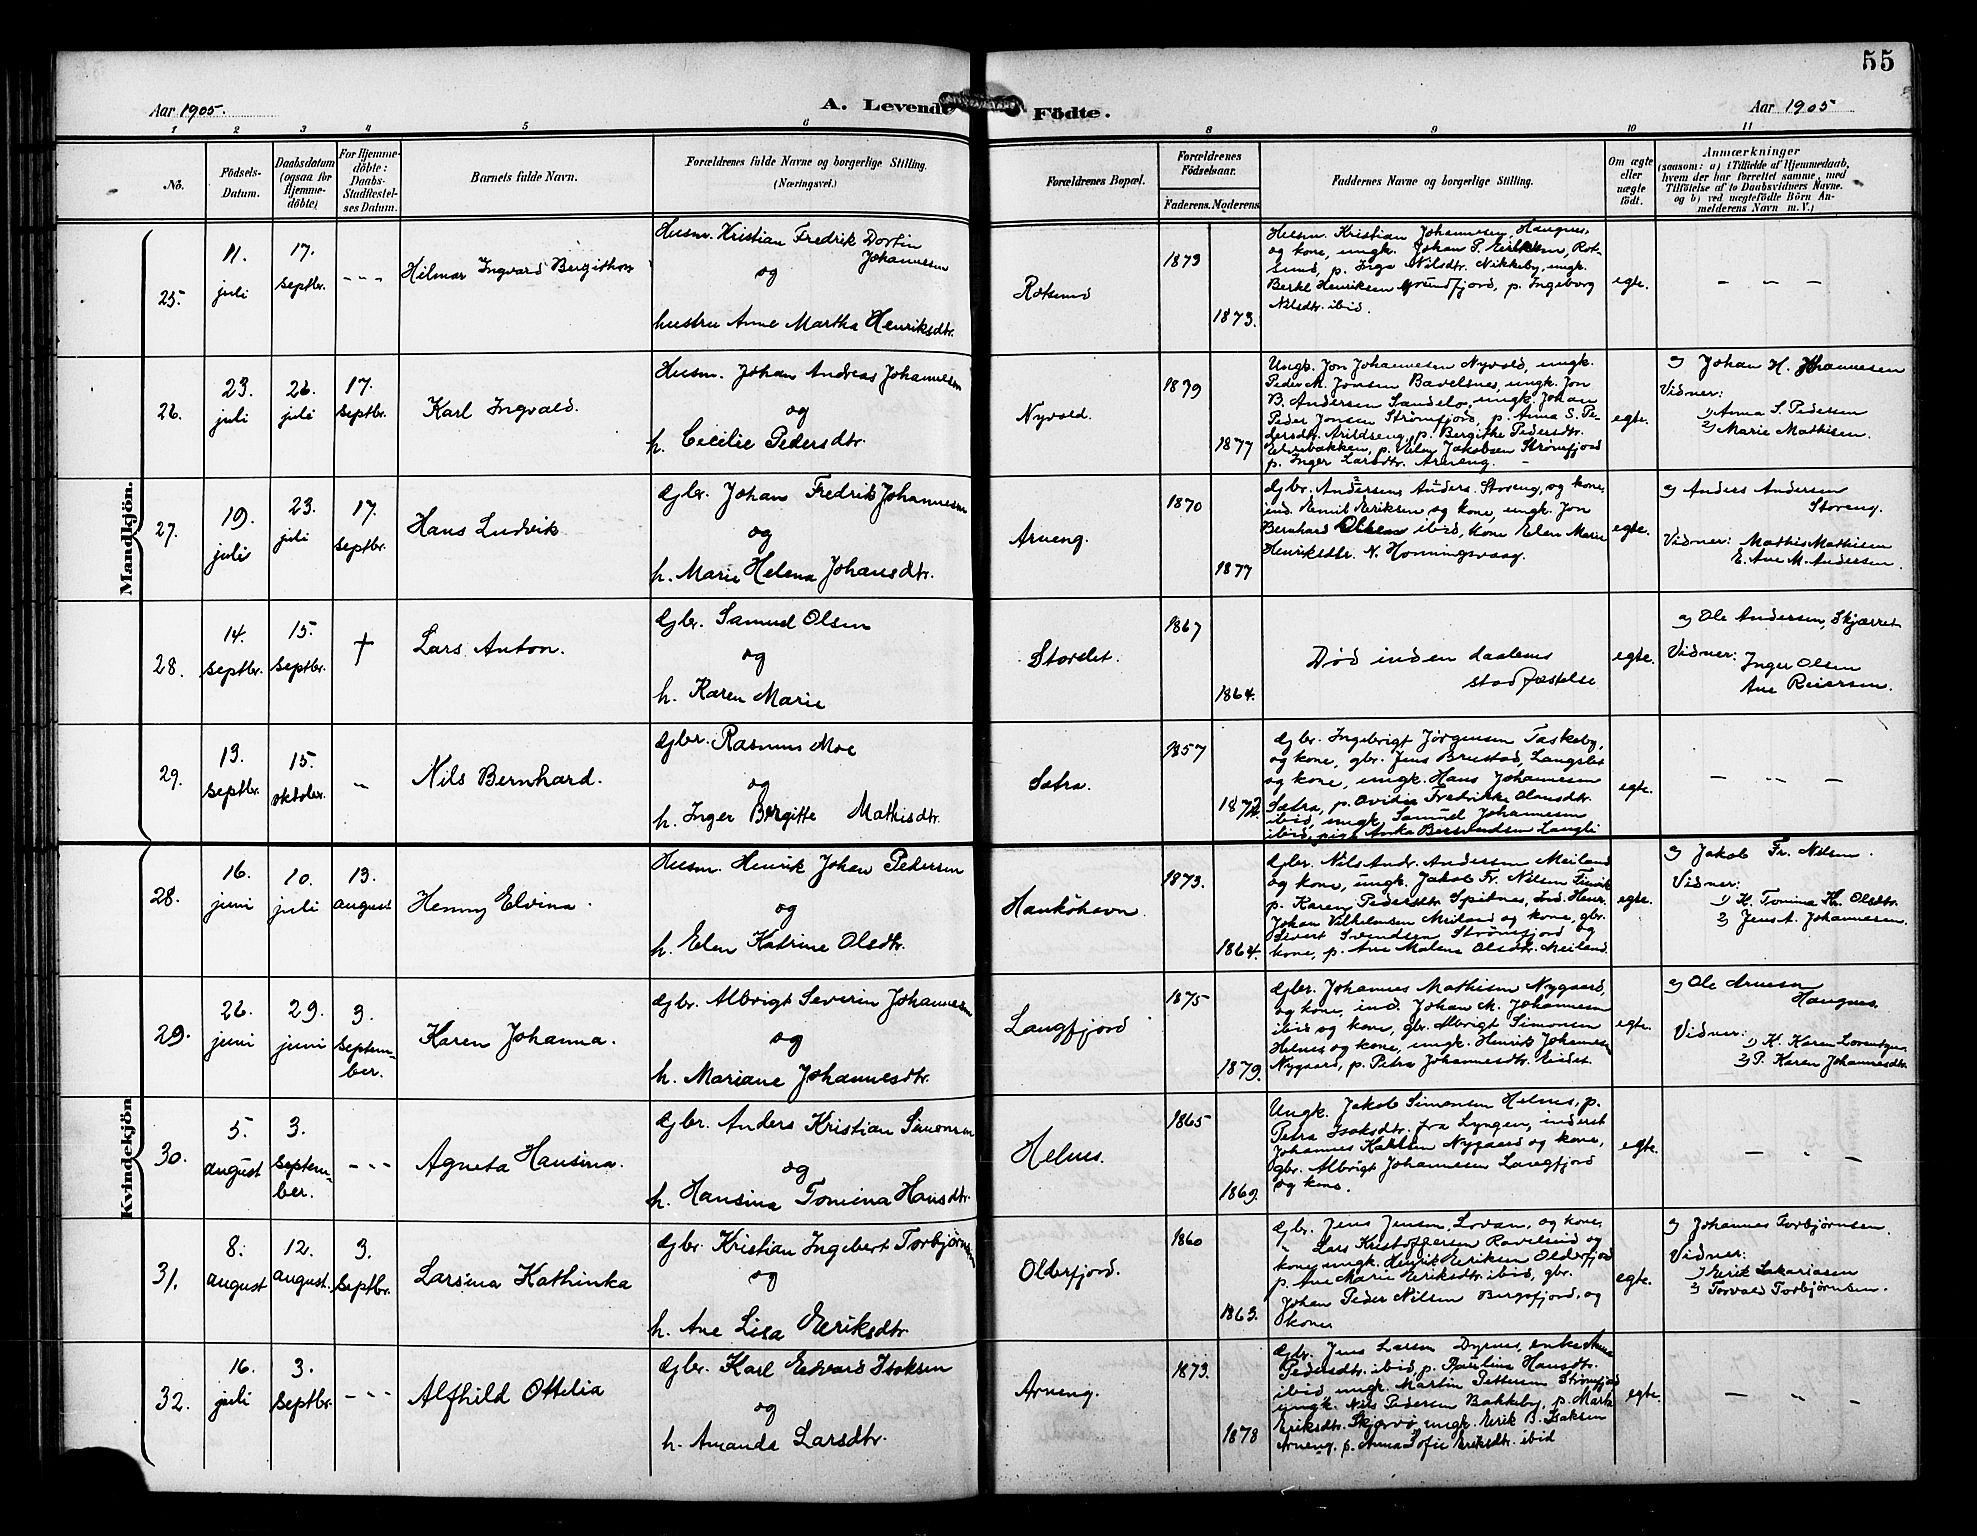 55
Aar 1905.
A. Levende
Födte.
Aar 1905
1 2 3 4 5 6 8 9 10 11
No.
Födsels-
Datum.
Daabsdatum
(ogsaa for
Hjemme-
döbte)
For Hjemme-
döbte:
Daabs-
Stadfæstel-
ses Datum.
Barnets fulde Navn.
Forældrenes fulde Navne og borgerlige Stilling.
(Næringsvei.)
Forældrenes Bopæl.
Forældrenes
Födselsaar.
Faderens. Moderens.
Faddernes Navne og borgerlige Stilling.
Om ægte
eller
uægte
födt.
Anmærkninger
(saasom: a) i Tilfælde af Hjemmedaab,
hvem der har forrettet samme, med
Tilföielse af to Daabsvidners Navne.
og b) ved uægtefödte Börn An-
melderens Navn m. V.)
Mandkjön.
25.
11.
juli
17.
septbr.
- - -
Hilmar Ingvard Bergithon
Husm. Kristian Fredrik Dortin
Johannesen
og
hustru Anne Martha Henriksdtr.
Rotsund
1873
1873.
Husm. Kristian Johannesen, Haugnes,
og kone, ungk. Johan P. Eriksen, Rot-
sund, p. Inga Nilsdtr. Nikkeby, ungk.
Bertel Henriksen Grundfjord, p. Ingeborg
Nilsdtr. ibid.
egte.
- - -
26.
23.
juli
26.
juli
17.
septbr.
Karl Ingvald.
Husm. Johan Andreas Johannesen
og
h. Cecilie Pedersdtr.
Nyvold.
1879
1877
Ungk. Jon Johannesen Nyvold, ungk.
Peder M. Jonsen Bavelsnes, ungk. Jon
B. Andersen Sandelø, ungk. Johan
Peder Jonsen Strømfjord, p. Anna S. Pe-
dersdtr. Arildseng, p. Bergithe Pedersdtr.
p. Jakobsen Strømfjord
p. Inger Larsdtr. Arneng. -
egte.
a) Johan H. Johannesen
Vidner:
1) Anna S. Pedersen
2) Marie Mathisen.
27.
19.
juli
23.
juli
17.
septbr.
Hans Ludvik
Gbr. Johan Fredrik Johannesen
og
h. Marie Helena Johansdtr.
Arneng.
1870
1877
Gbr. Andersen Anders Storeng, og kone,
ind. Emil Eriksen og kone, ungk. Jon
Bernhard Olsen ibid, kone Elen Marie
Henriksdtr. N. Honningsvaag.
egte.
a) Anders Andersen
Storeng.
Vidner: Mathis Mathisen
E. Ane M. Andersen.
28.
14.
septbr.
15.
septbr.
†
Lars Anton.
Gbr. Samuel Olsen
og
h. Karen Marie
Storslet.
1867
1864.
Død inden daabens
stadfæstelse
egte.
a) Ole Andersen, Skjærret
Vidner: Inger Olsen
Ane Reiersen.
29.
13.
septbr.
15.
oktober.
-
Nils Bernhard.
Gbr. Rasmus Moe
og
h. Inger Bergitte Mathisdtr.
Sætra.
1857
1872.
Gbr. Ingebrigt Jørgensen Taskeby,
og kone, gbr. Jens Brustad, Langslet
og kone, ungk. Hans Johannesen
Sætra, p. Ovidia Fredrikke Olausdtr.
ibid, ungk. Samuel Johannesen
ibid, pige Anka Berntsen Langli
egte.
- - -
Kvindekjön
28.
16.
juni
10.
juli
13.
august
Henny Elvina.
Husm. Henrik Johan Pedersen
og
h. Elen Katrine Olsdtr.
Haukøhavn.
1873.
1864.
Gbr. Nils Andr. Andersen Meiland
og kone, ungk. Jakob Fr. Nilsen
p. Karen Pedersdtr. Spitnes, ind. Henr.
Johan Vilhelmsen Meiland og kone, gbr.
Sivert Svendsen Strømfjord og
kone, p. Ane Malene Olsdtr. Meiland.
egte.
a) Jakob Fr. Nilsen.
Vidner:
1) K. Tomina Kr. Olsdtr.
2) Jens A. Johannesen.
29.
26.
juni
29.
juni
3.
septem-
ber.
Karen Johanna.
Gbr. Albrigt Severin Johannesen
og
h. Mariane Johannesdtr.
Langfjord
1875
1879.
Gbr. Johannes Mathisen Nygaard,
og kone, ind. Johan M. Johannesen
ibid og kone, gbr. Albrigt Simonsen
Helnes og kone, ungk. Henrik Johannesen
Nygaard, p. Petra Johannesdtr. Eidet.
egte.
a) Ole Arnesen
Haugnes.
Vidner: 1) K. Karen Lorentzen
2) P. Karen Johannesdtr.
30.
5.
august
3.
septem-
ber.
- - -
Agneta Hansina.
Gbr. Anders Kristian Simonsen
og
h. Hansina Tomina Hansdtr.
Helnes.
1865
1869.
Ungk. Jakob Simonsen Helnes, p.
Petra Isaksdtr. fra Lyngen, inderst
Johannes Karlsen Nygaard og kone,
gbr. Albrigt Johannesen Langfjord
og kone.
egte.
- - -
31.
8.
august
12.
august.
3.
septbr.
Larsina Kathinka
Gbr. Kristian Ingebert Torbjørnsen
og
h. Ane Lisa Eriksdtr.
Olderfjord.
1860
1863.
Gbr. Jens Jensen, Lovan, og kone,
" Lars Kristoffersen Ravelseid og
kone, ungk. Henrik Eriksen Olderfjord
p. Ane Marie Eriksdtr. ibid, gbr.
Johan Peder Nilsen Bergsfjord, og
kone
egte.
a) Johannes Torbjørnsen.
Vidner:
1) Erik Sakariasen
2) Torvald Torbjørnsen.
32.
16.
juli
3.
septbr.
- - -
Alfhild Ottelia
Gbr. Karl Edvard Isaksen
og
h. Amanda Larsdtr.
Arneng.
1873.
1878
Gbr. Jens Larsen Dyrnes, enke Anna
Pedersdtr. ibid, p. Paulina Hansdtr.
ibid, ungk. Martin Pettersen Strømfjord
ungk. Nils Pedersen Bakkeby, p. Marta
Eriksdtr. Skjervø, ungk. Erik B. Isaksen
Arneng, p. Anna Sofie Eriksdtr. ibid
egte.
- " -